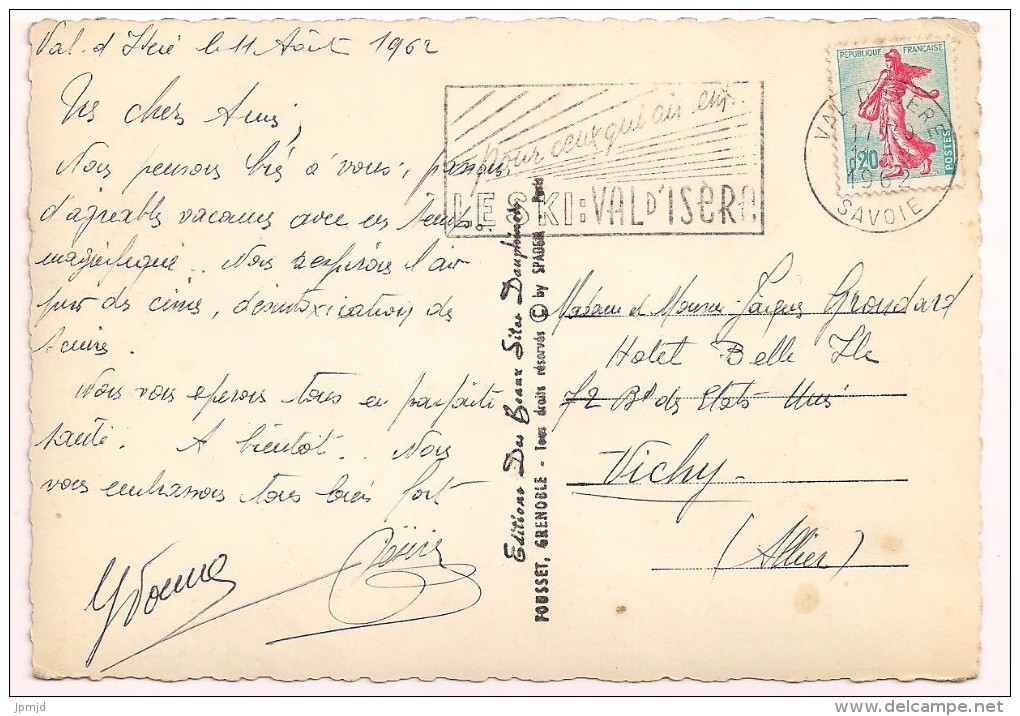 Val. d'Isère le 11 Août 1962
Mes chers Amis,
Nous pensons bien à vous, passons
d'agréables vacances avec un temps
magnifique.. Nous respirons l'air
pur des cimes, désintoxication de
Nous vous espérons tous en parfaite
santé. A bientôt.. Nous
vous embrassons tous bien fort
Yvonne
pour ceux qui aiment
LE SKI: VAL D'ISÈRE
REPUBLIQUE FRANÇAISE
0,20
POSTES
VAL D'ISERE
17H
1962
SAVOIE
Editions Des Beaux Sites Dauphinois
POUSSET, GRENOBLE - Tous droits réservés © by SPADEM Paris
Madame et Monsieur Jacques Grondard
Hotel Belle Ile
72 Bd des Etats Unis
Vichy
(Allier)
jpmjd
www.delcampe.net